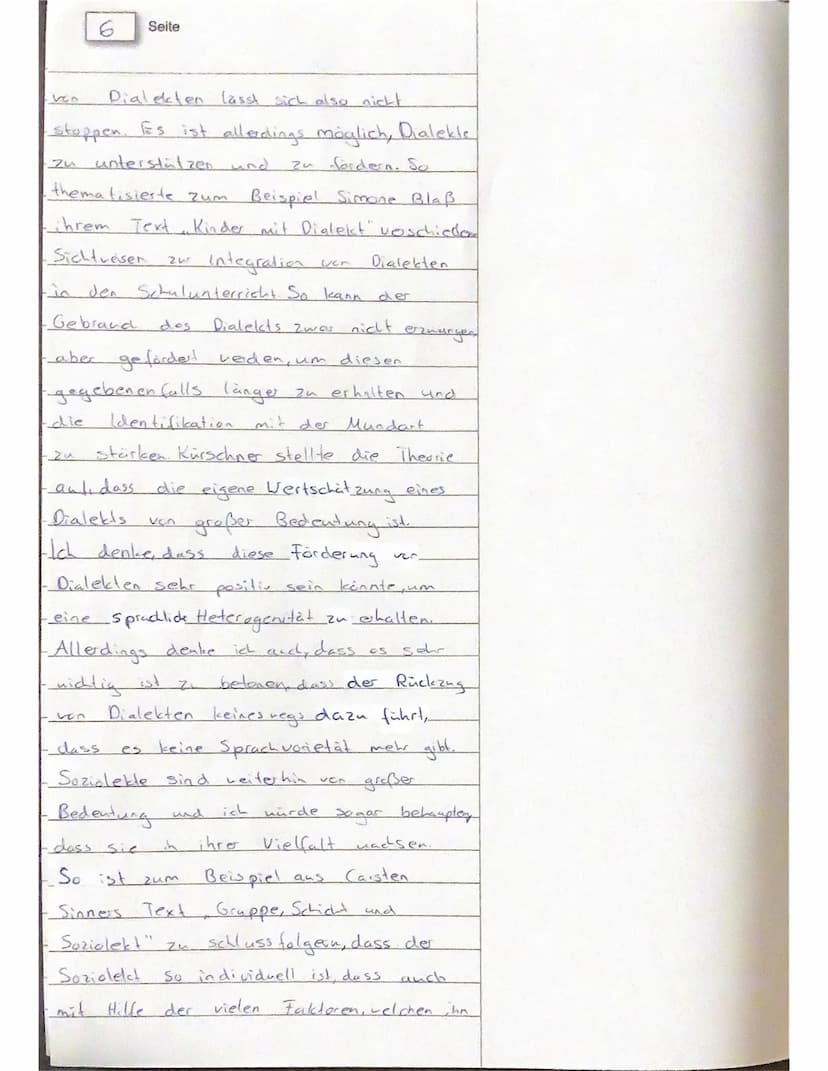 6 Seite
von Dialekten lässt sich also nicht
stoppen. Es ist allerdings möglich, Dialekte
zu unterstützen und zu fördern. So
thematisierte zum Beispiel Simone Blaß
ihrem Text „Kinder mit Dialekt" verschieden
Sichtweisen zur Integration von Dialekten
in den Schulunterricht. So kann der
Gebrauch des Dialekts zwar nicht erzwungen
aber gefördert werden, um diesen
gegebenenfalls länger zu erhalten und
die Identifikation mit der Mundart
zu stärken. Kürschner stellte die Theorie
auf, dass die eigene Wertschätzung eines
Dialekts von großer Bedeutung ist.
Ich denke, dass diese Förderung von
Dialekten sehr positiv sein könnte, um
eine sprachliche Heterogenität zu erhalten.
Allerdings denke ich auch, dass es sehr
wichtig ist zu betonen, dass der Rückzug
von Dialekten keineswegs dazu führt,
dass es keine Sprachvarietät mehr gibt.
Soziolekte sind weiterhin von großer
Bedeutung und ich würde sogar behaupten,
dass sie in ihrer Vielfalt wachsen.
So ist zum Beispiel aus Carsten
Sinners Text „Gruppe, Schicht und
Soziolekt" zu schlussfolgern, dass der
Soziolekt so individuell ist, dass auch
mit Hilfe der vielen Faktoren, welchen ihn